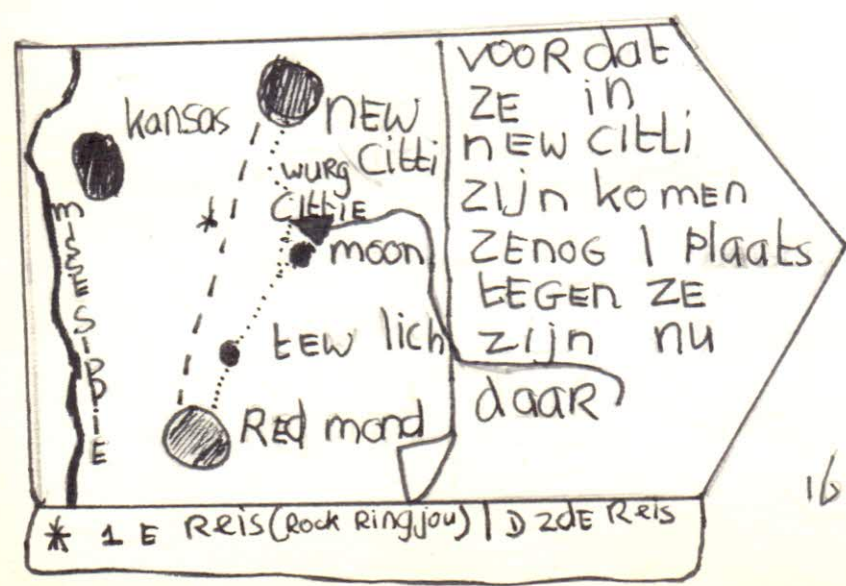 kansas
NEW
Citti
wurg
Cittie
moon
tew lich
Red mond
missesippie
VOOR dat
ZE in
nEW Citti
zijn komen
ZENOG 1 plaats
tEGEn ZE
zijn nu
daar
* 1 E Reis (Rock Ringjou) | D 2dE Reis
16